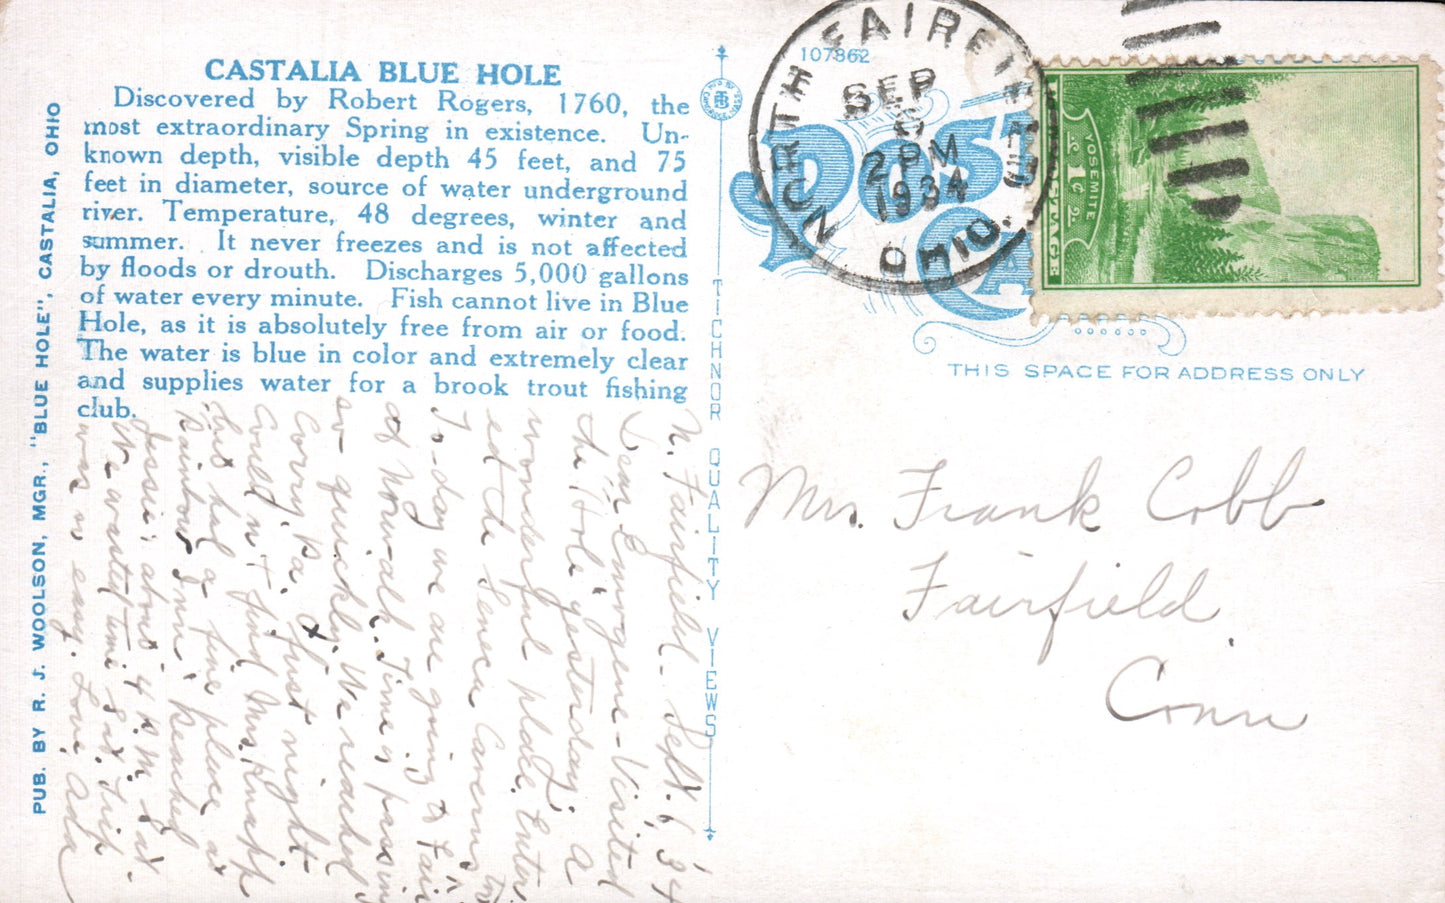 CASTALIA BLUE HOLE
Discovered by Robert Rogers, 1760, the
most extraordinary Spring in existence. Un-
known depth, visible depth 45 feet, and 75
feet in diameter, source of water underground
river. Temperature, 48 degrees, winter and
summer. It never freezes and is not affected
by floods or drouth. Discharges 5,000 gallons
of water every minute. Fish cannot live in Blue
Hole, as it is absolutely free from air or food.
The water is blue in color and extremely clear
and supplies water for a brook trout fishing
club.
PUB. BY R. J. WOOLSON, MGR., "BLUE HOLE", CASTALIA, OHIO
N. Fairfield - Sept. 6, '34
Dear Emogene - Visited
the "Hole" yesterday. A
wonderful place. Enter-
ed the Seneca Caverns too
To-day we are going to Fair
at Norwalk. Time is passing
so quickly. We reached
Corry, Pa. first night
Could n't find Mrs. Knapp
but had a fine place at
Rainbow Inn. Reached
Jessie's about 4 P.M. Sat.
We wasted time Sat. Trip
was so easy. Love, Ada
TICHNOR QUALITY VIEWS
107862
POST CA
NORTH FAIRFIELD
SEP
6
2 PM
1934
OHIO.
YOSEMITE
1¢
THIS SPACE FOR ADDRESS ONLY
Mrs. Frank Cobb
Fairfield,
Conn